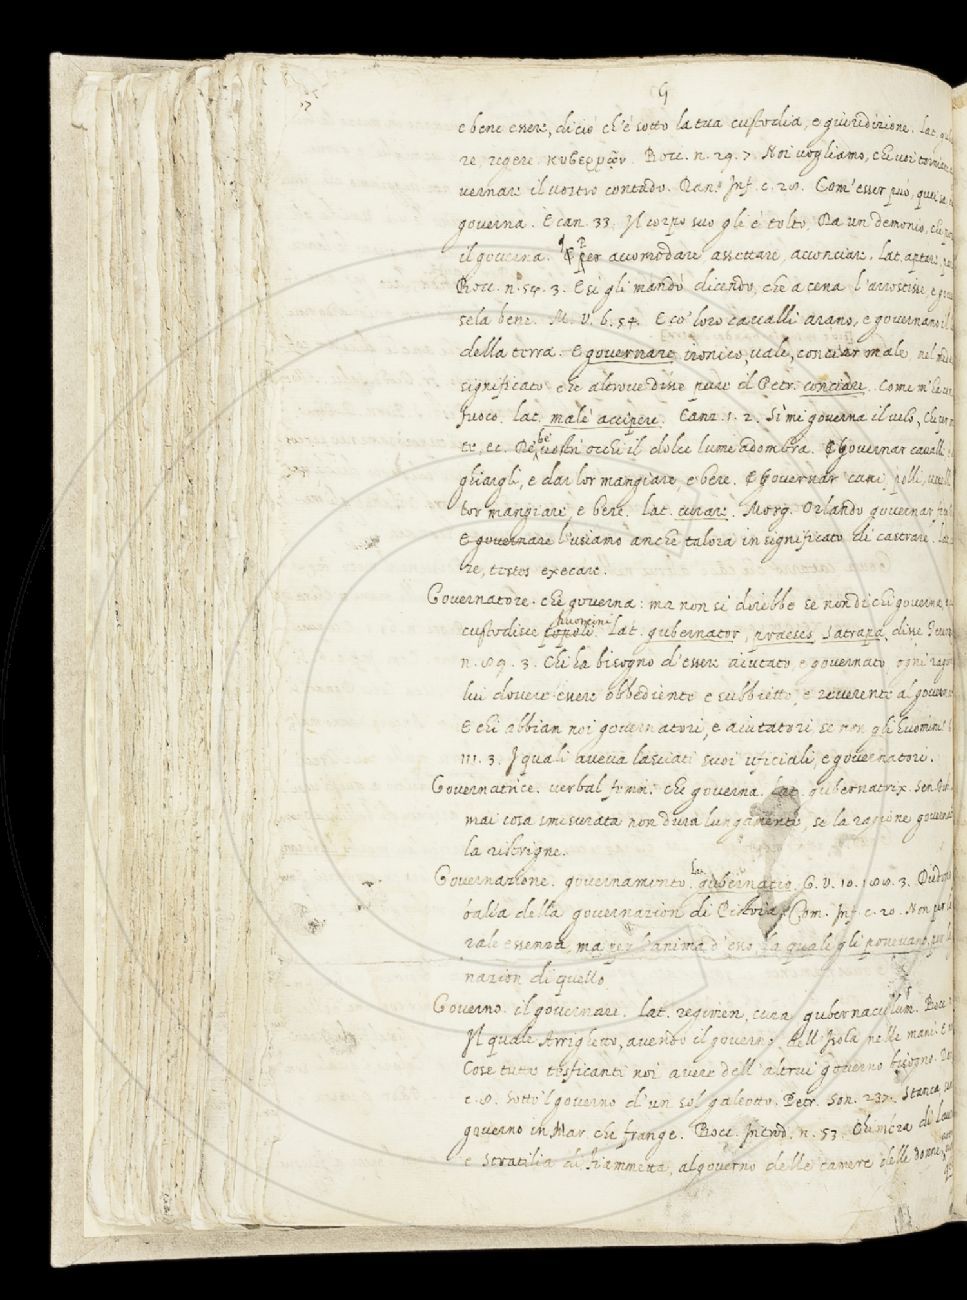 G
e bene essere, di ciò ch'è sotto la tua custodia, e giuridizione. Lat.
re, regere. κυβερρᾷν. Bocc. n. 29. 7. Noi vogliamo, che voi torniate
vernare il vostro contado. Dan. Inf. c. 28. Com' esser può, quei sa
governa. E can. 33. Il corpo suo gli è tolto, Da un demonio, che
il governa. Per accomodare assettare, acconciare. Lat. aptare,
Bocc. n. 54. 3. E sì gli mandò dicendo, che a cena l'arrostisse, e
sela bene. M. V. 6. 54. E co' loro cavalli arano, e governano il
della terra. E governare ironico, vale, conciar male, nel
significato che altrove disse pure il Petr. conciare. Come m'ha
fuoco. lat. male accipere. Canz. 1. 2. Sì mi governa il velo, Che per
te, ec. De be' vostri occhi il dolce lume adombra. Governar cavalli
gliargli, e dar lor mangiare, e bere. Governar cani, polli, uccelli
lor mangiare e bere. lat. curare. Morg. Orlando governar
E governare l'usiamo anche talora in significato di castrare. lat.
re, testes execare.
Governatore. che governa: ma non si direbbe se non di chi governa,
custodisce popoli huomini. lat. gubernator, praeses, satrapa, disse
n. 89. 3. Chi ha bisogno d'essere aiutato, e governato, ogni
lui dovere essere obbediente e subbietto, e reverente al
E chi abbian noi governatori, e aiutatori, se non gli huomini?
111. 3. I quali aveva lasciati suoi uficiali, e governatori.
Governatrice. verbal femm. che governa. lat. gubernatrix. Sen.
mai cosa smisurata non dura lungamente, se la ragione
la ristrigne.
Governazione. governamento. Lat. gubernatio. G. V. 10. 188. 3.
balìa della governazion di Pistoia. Com. Inf. c. 20. Non per
rale essenza, ma per l'anima d'esso, la quale gli ponevano, per
nazion di quello.
Governo. il governare. lat. regimen, cura gubernaculum. Bocc.
Il quale Arrighetto, avendo il governo dell'Isola nelle mani.
Cose tutte tesficanti noi avere dell'altrui governo bisogno.
c. 8. Sotto 'l governo d'un sol galeotto. Petr. Son. 237. Stanca
governo in Mar, che frange. Bocc. Introd. n. 53. Chimera di
e Stratilia di Fiammetta, al governo delle camere delle donne